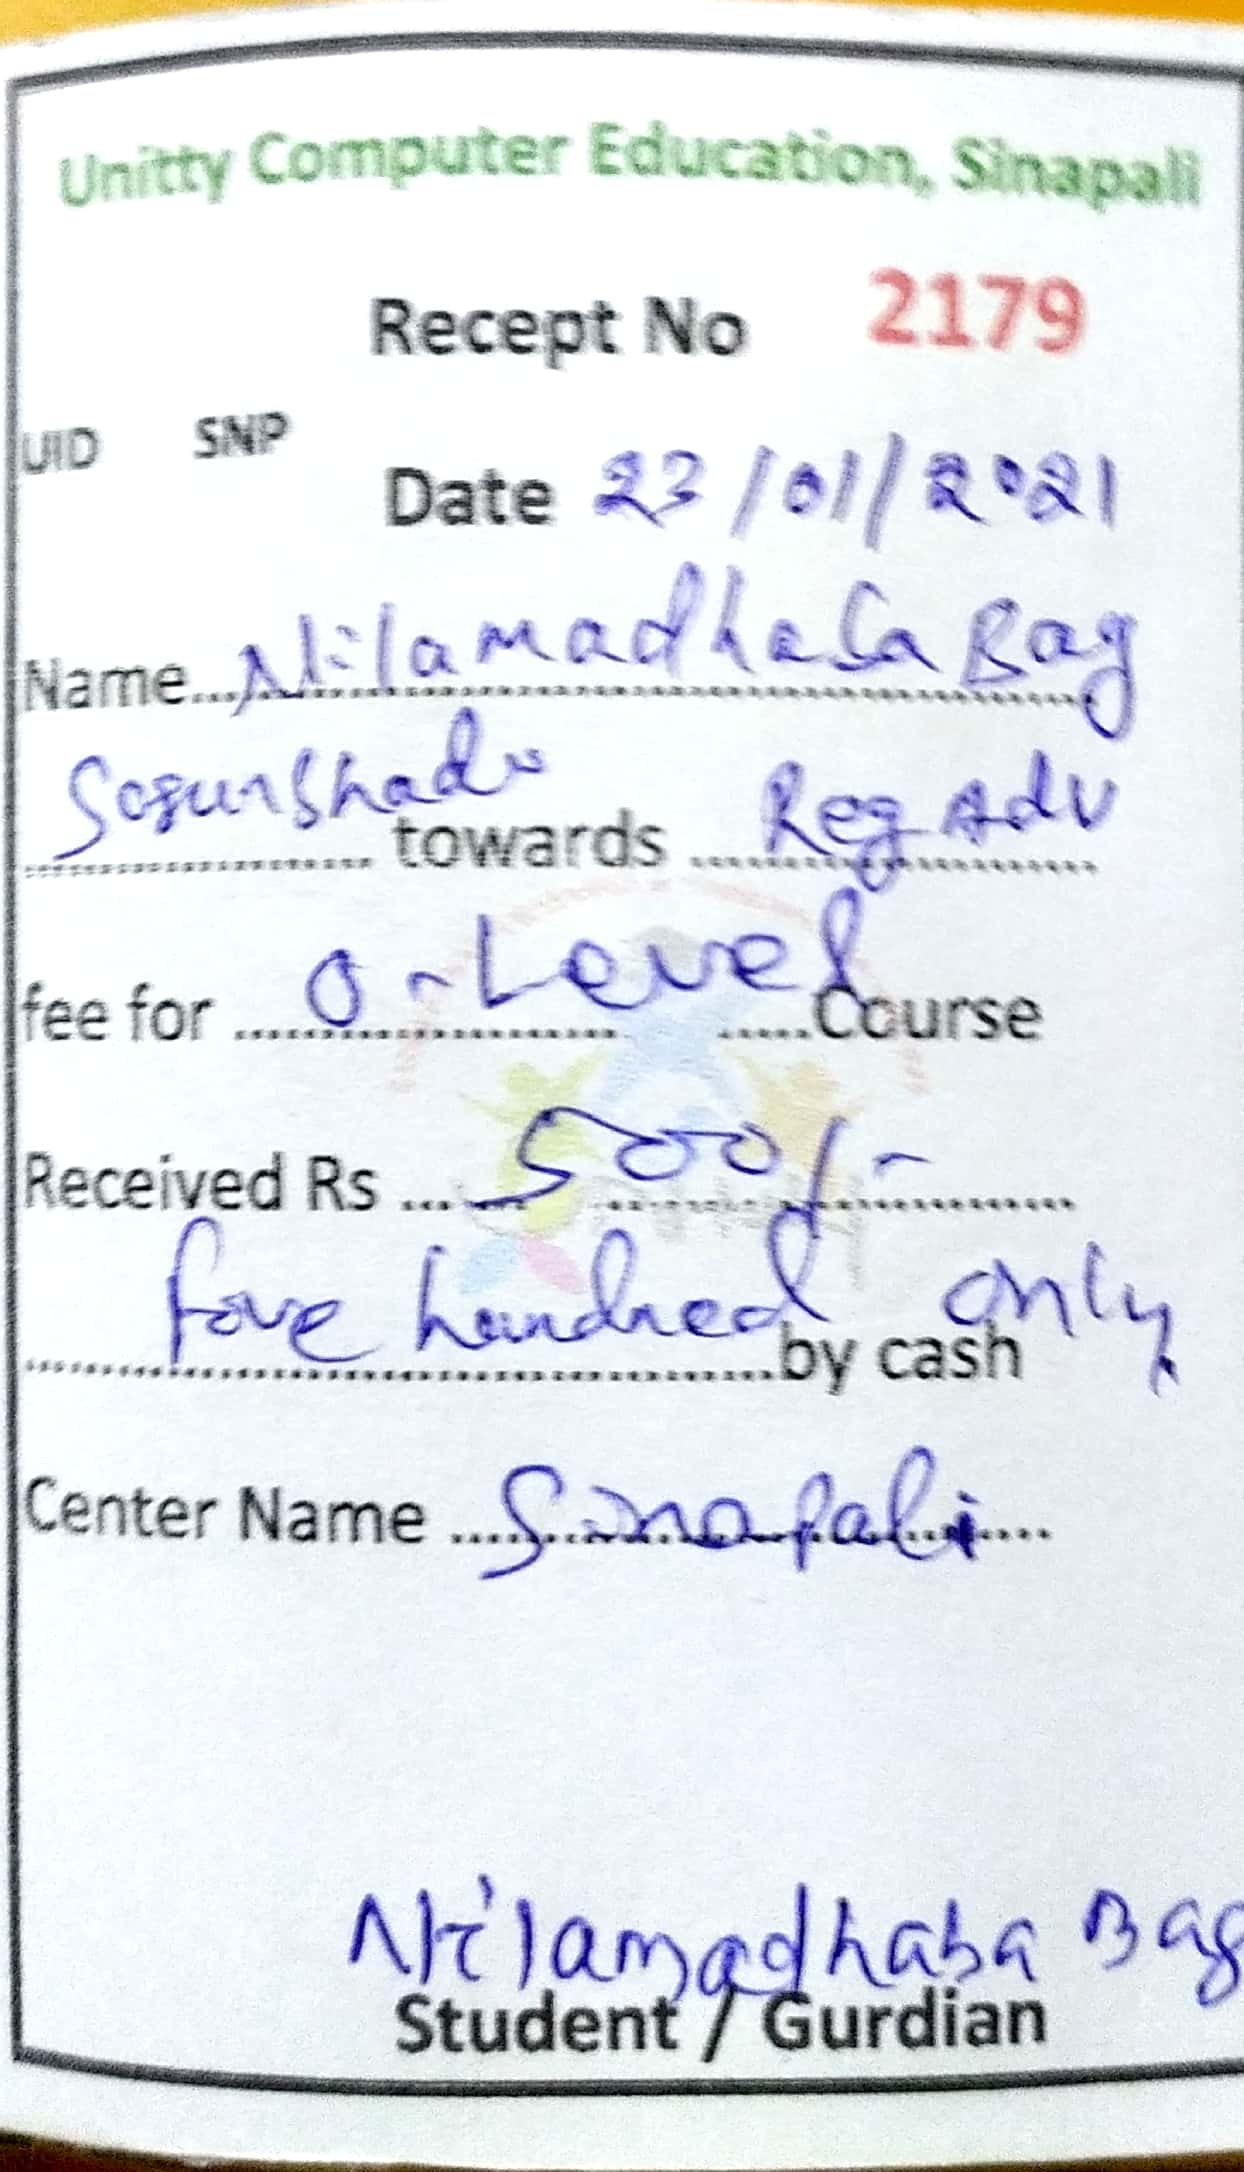 Unitty Computer Education, Sinapali
Recept No 2179
UID SNP
Date 23/01/2021
Name... Nilamadhaba Bag
towards Reg Adv
fee for ... O-Level ...Course
Received Rs ... 500/-
five hundred only
by cash
Center Name ... Sinapali ...
Nilamadhaba Bag
Student / Gurdian